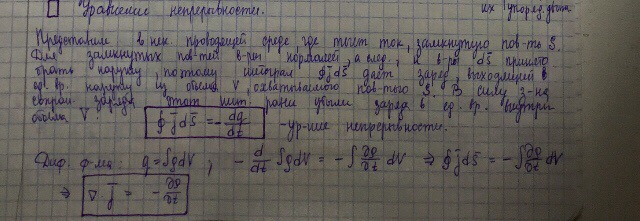 Уравнение непрерывности.
их упоряд. движ
Представим в нек. проводящей среде, где течет ток, замкнутую пов-ть S.
Для замкнутых пов-тей в-ры нормалей, а след., и в-ры dS̄ принято
брать наружу, поэтому интеграл ∮j̄dS̄ дает заряд, выходящий в
ед. вр. наружу из объема V, охватываемого пов-тью S. В силу з-на
сохран. заряда этот инт. равен убыли заряда в ед. вр. внутри
объема V: ∮j̄dS̄ = -dq/dt - ур-ние непрерывности.
Диф. ф-ма: q = ∫ρdV ; -d/dt ∫ρdV = -∫∂ρ/∂t dV ⇒ ∮j̄dS̄ = -∫∂ρ/∂t dV
⇒ ∇j̄ = -∂ρ/∂t